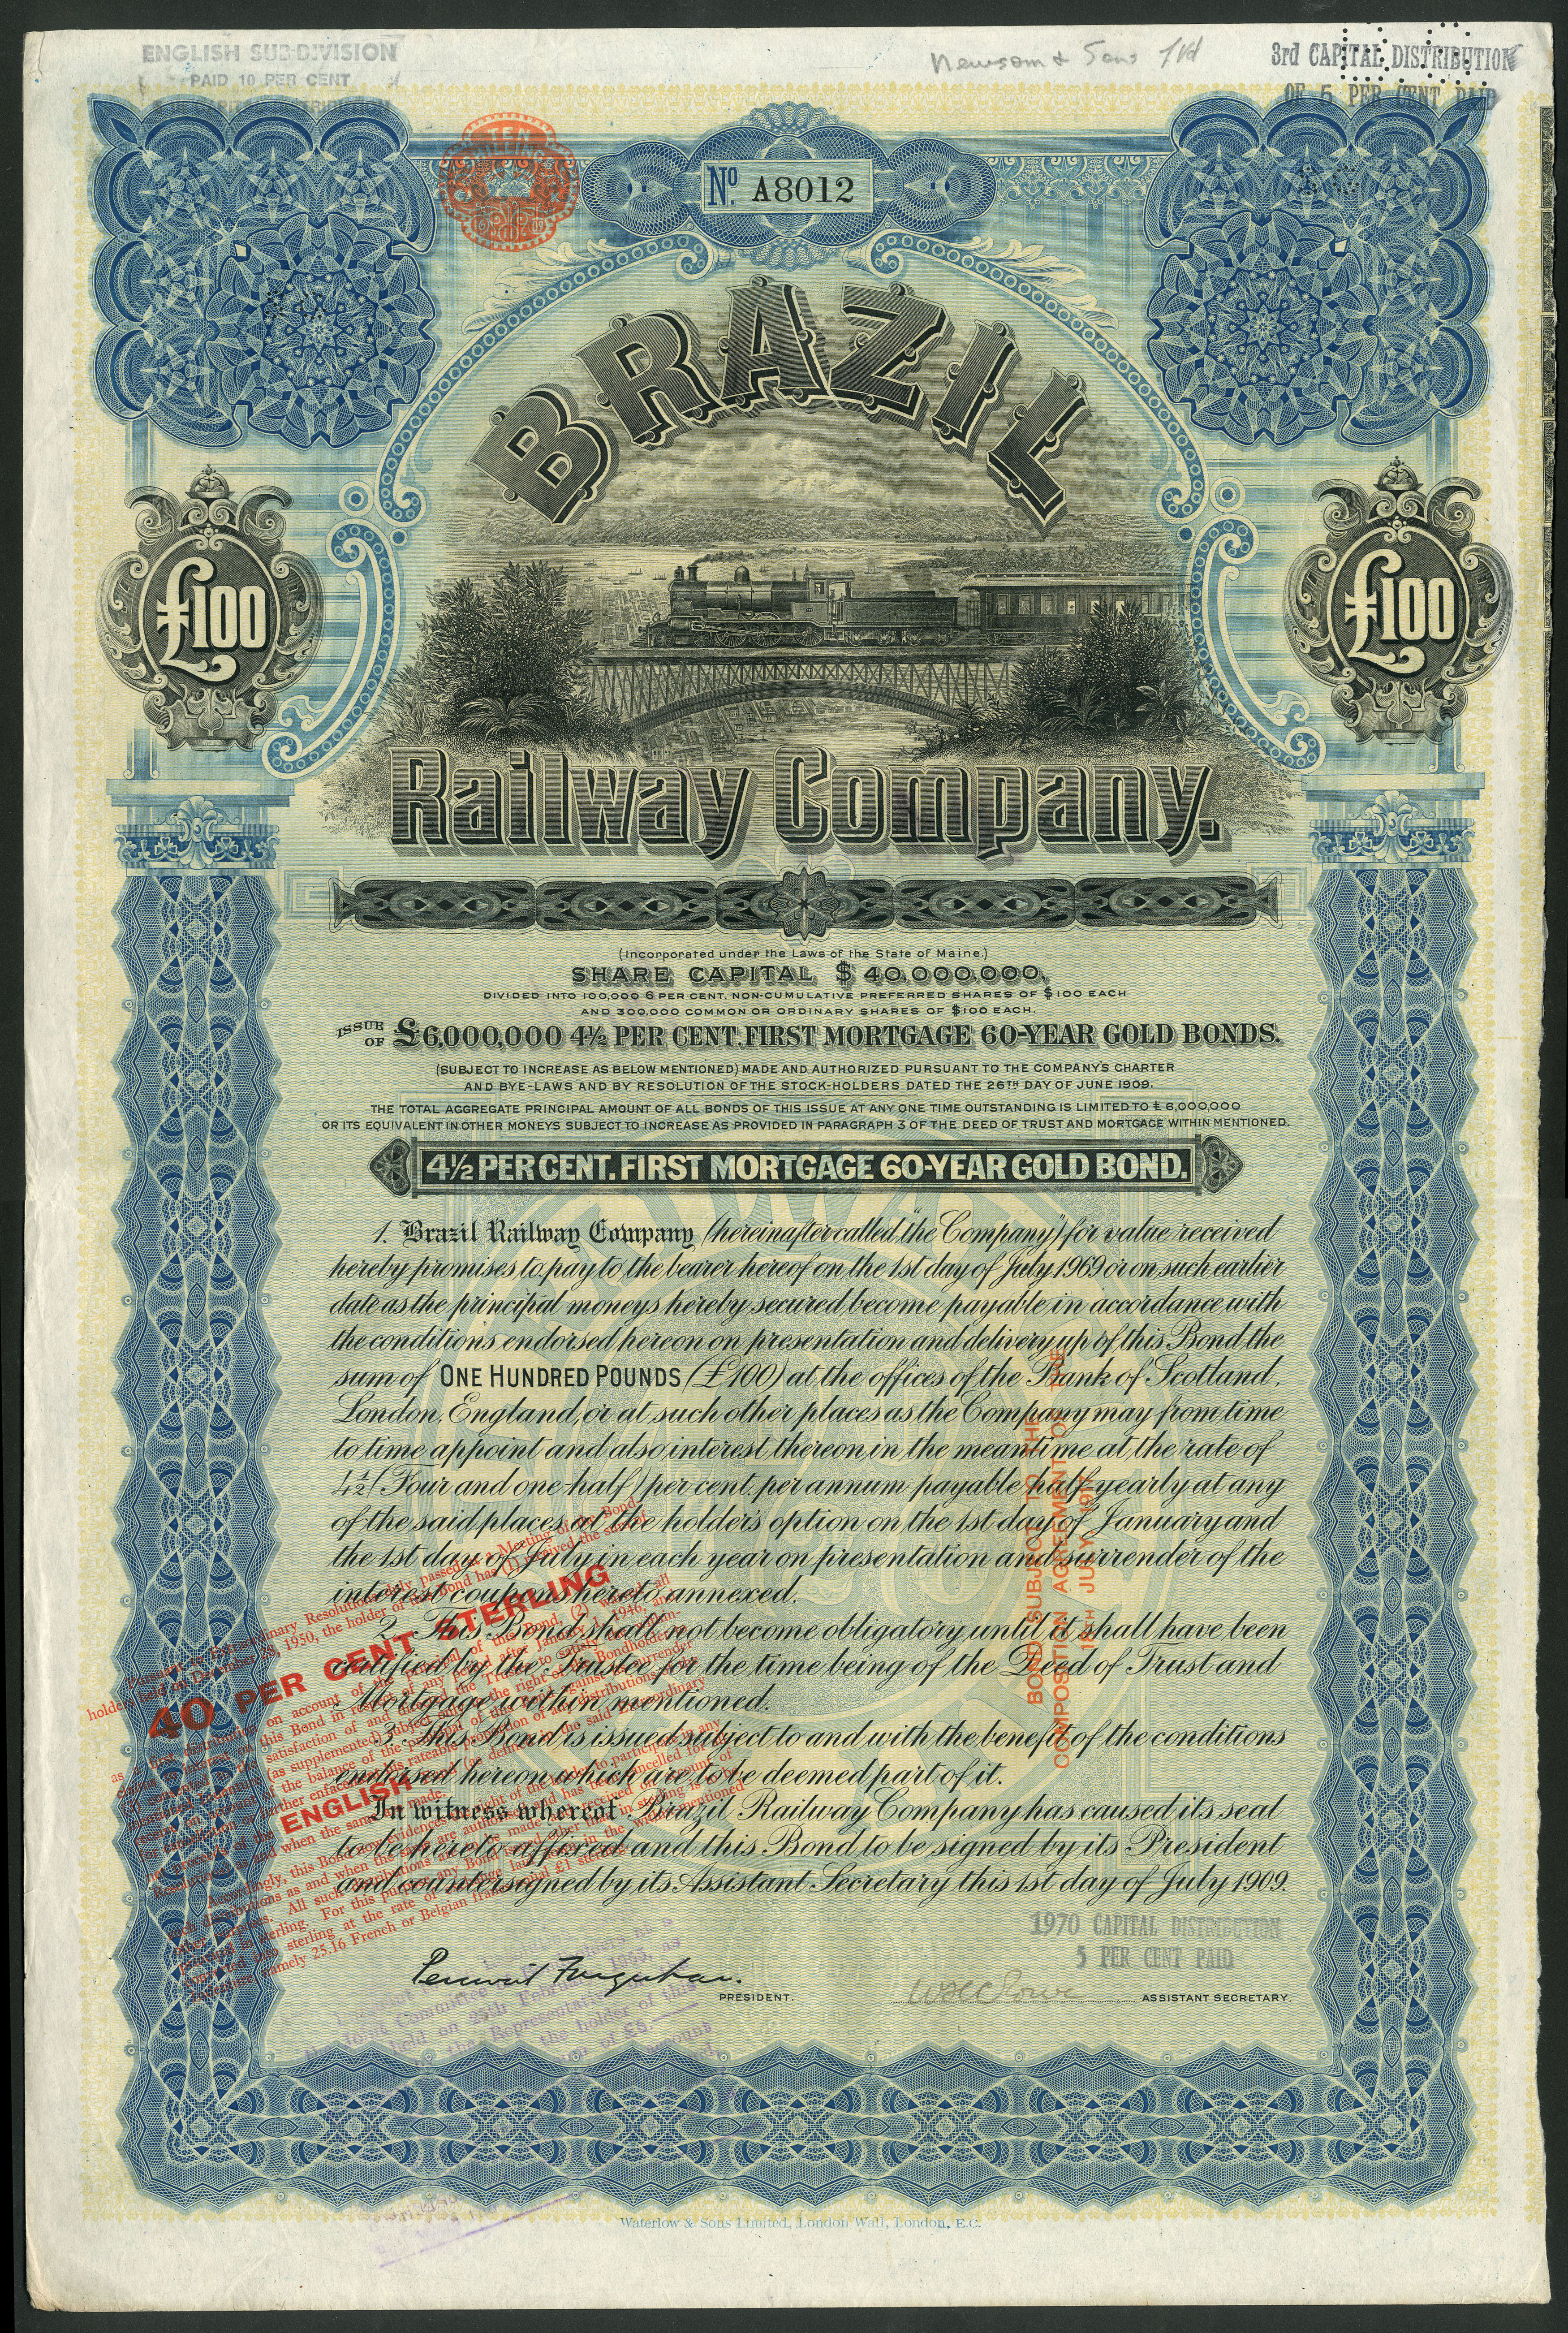 ENGLISH SUB-DIVISION
PAID 10 PER CENT
Newsom & Sons Ltd
3rd CAPITAL DISTRIBUTION
OF 5 PER CENT PAID
TEN
SHILLINGS
No. A8012
BRAZIL
£100
£100
Railway Company.
(Incorporated under the Laws of the State of Maine.)
SHARE CAPITAL $40,000,000,
DIVIDED INTO 100,000 6 PER CENT. NON-CUMULATIVE PREFERRED SHARES OF $100 EACH
AND 300,000 COMMON OR ORDINARY SHARES OF $100 EACH.
ISSUE OF £6,000,000 4½ PER CENT. FIRST MORTGAGE 60-YEAR GOLD BONDS.
(SUBJECT TO INCREASE AS BELOW MENTIONED) MADE AND AUTHORIZED PURSUANT TO THE COMPANY'S CHARTER
AND BYE-LAWS AND BY RESOLUTION OF THE STOCK-HOLDERS DATED THE 26TH DAY OF JUNE 1909.
THE TOTAL AGGREGATE PRINCIPAL AMOUNT OF ALL BONDS OF THIS ISSUE AT ANY ONE TIME OUTSTANDING IS LIMITED TO £6,000,000
OR ITS EQUIVALENT IN OTHER MONEYS SUBJECT TO INCREASE AS PROVIDED IN PARAGRAPH 3 OF THE DEED OF TRUST AND MORTGAGE WITHIN MENTIONED.
4½ PER CENT. FIRST MORTGAGE 60-YEAR GOLD BOND.
1. Brazil Railway Company (hereinafter called "the Company") for value received
hereby promises to pay to the bearer hereof on the 1st day of July 1969 or on such earlier
date as the principal moneys hereby secured become payable in accordance with
the conditions endorsed hereon on presentation and delivery up of this Bond, the
sum of ONE HUNDRED POUNDS (£100) at the offices of the Bank of Scotland,
London, England, or at such other places as the Company may from time
to time appoint and also interest thereon in the meantime at the rate of
4½ (Four and one-half) per cent. per annum payable half-yearly at any
of the said places at the holder's option on the 1st day of January and
the 1st day of July in each year on presentation and surrender of the
interest coupons hereto annexed.
2. This Bond shall not become obligatory until it shall have been
certified by the Trustee for the time being of the Deed of Trust and
Mortgage within mentioned.
3. This Bond is issued subject to and with the benefit of the conditions
endorsed hereon which are to be deemed part of it.
In witness whereof Brazil Railway Company has caused its seal
to be hereto affixed and this Bond to be signed by its President
and countersigned by its Assistant Secretary this 1st day of July 1909.
BOND SUBJECT TO THE
COMPOSITION AGREEMENT OF THE
18TH JULY
40 PER CENT STERLING
ENGLISH
1970 CAPITAL DISTRIBUTION
5 PER CENT PAID
Percival Farquhar.
PRESIDENT.
ASSISTANT SECRETARY.
Waterlow & Sons Limited, London Wall, London, E.C.